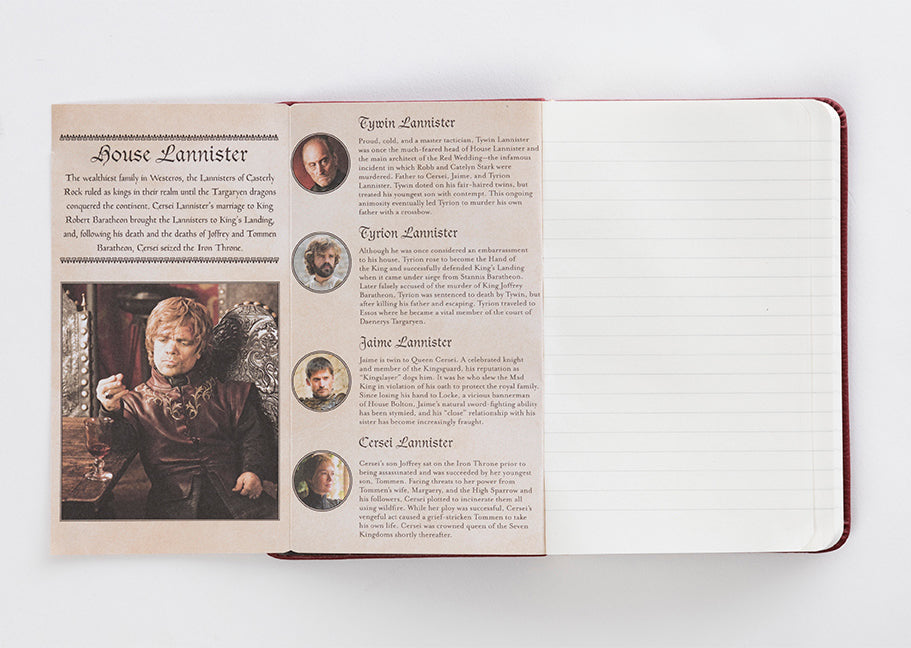 House Lannister
The wealthiest family in Westeros, the Lannisters of Casterly
Rock ruled as kings in their realm until the Targaryen dragons
conquered the continent. Cersei Lannister's marriage to King
Robert Baratheon brought the Lannisters to King's Landing,
and, following his death and the deaths of Joffrey and Tommen
Baratheon, Cersei seized the Iron Throne.
Tywin Lannister
Proud, cold, and a master tactician, Tywin Lannister
was once the much-feared head of House Lannister and
the main architect of the Red Wedding—the infamous
incident in which Robb and Catelyn Stark were
murdered. Father to Cersei, Jaime, and Tyrion
Lannister, Tywin doted on his fair-haired twins, but
treated his youngest son with contempt. This ongoing
animosity eventually led Tyrion to murder his own
father with a crossbow.
Tyrion Lannister
Although he was once considered an embarrassment
to his house, Tyrion rose to become the Hand of
the King and successfully defended King's Landing
when it came under siege from Stannis Baratheon.
Later falsely accused of the murder of King Joffrey
Baratheon, Tyrion was sentenced to death by Tywin, but
after killing his father and escaping, Tyrion traveled to
Essos where he became a vital member of the court of
Daenerys Targaryen.
Jaime Lannister
Jaime is twin to Queen Cersei. A celebrated knight
and member of the Kingsguard, his reputation as
"Kingslayer" dogs him. It was he who slew the Mad
King in violation of his oath to protect the royal family.
Since losing his hand to Locke, a vicious bannerman
of House Bolton, Jaime's natural sword-fighting ability
has been stymied, and his "close" relationship with his
sister has become increasingly fraught.
Cersei Lannister
Cersei's son Joffrey sat on the Iron Throne prior to
being assassinated and was succeeded by her youngest
son, Tommen. Facing threats to her power from
Tommen's wife, Margaery, and the High Sparrow and
his followers, Cersei plotted to incinerate them all
using wildfire. While her ploy was successful, Cersei's
vengeful act caused a grief-stricken Tommen to take
his own life. Cersei was crowned queen of the Seven
Kingdoms shortly thereafter.